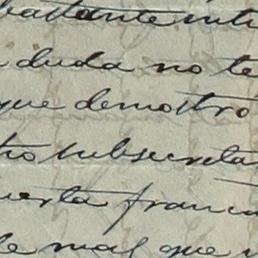 bastante inte
duda no te
que demostró
tro subsecreta
uesta franca
de mas que